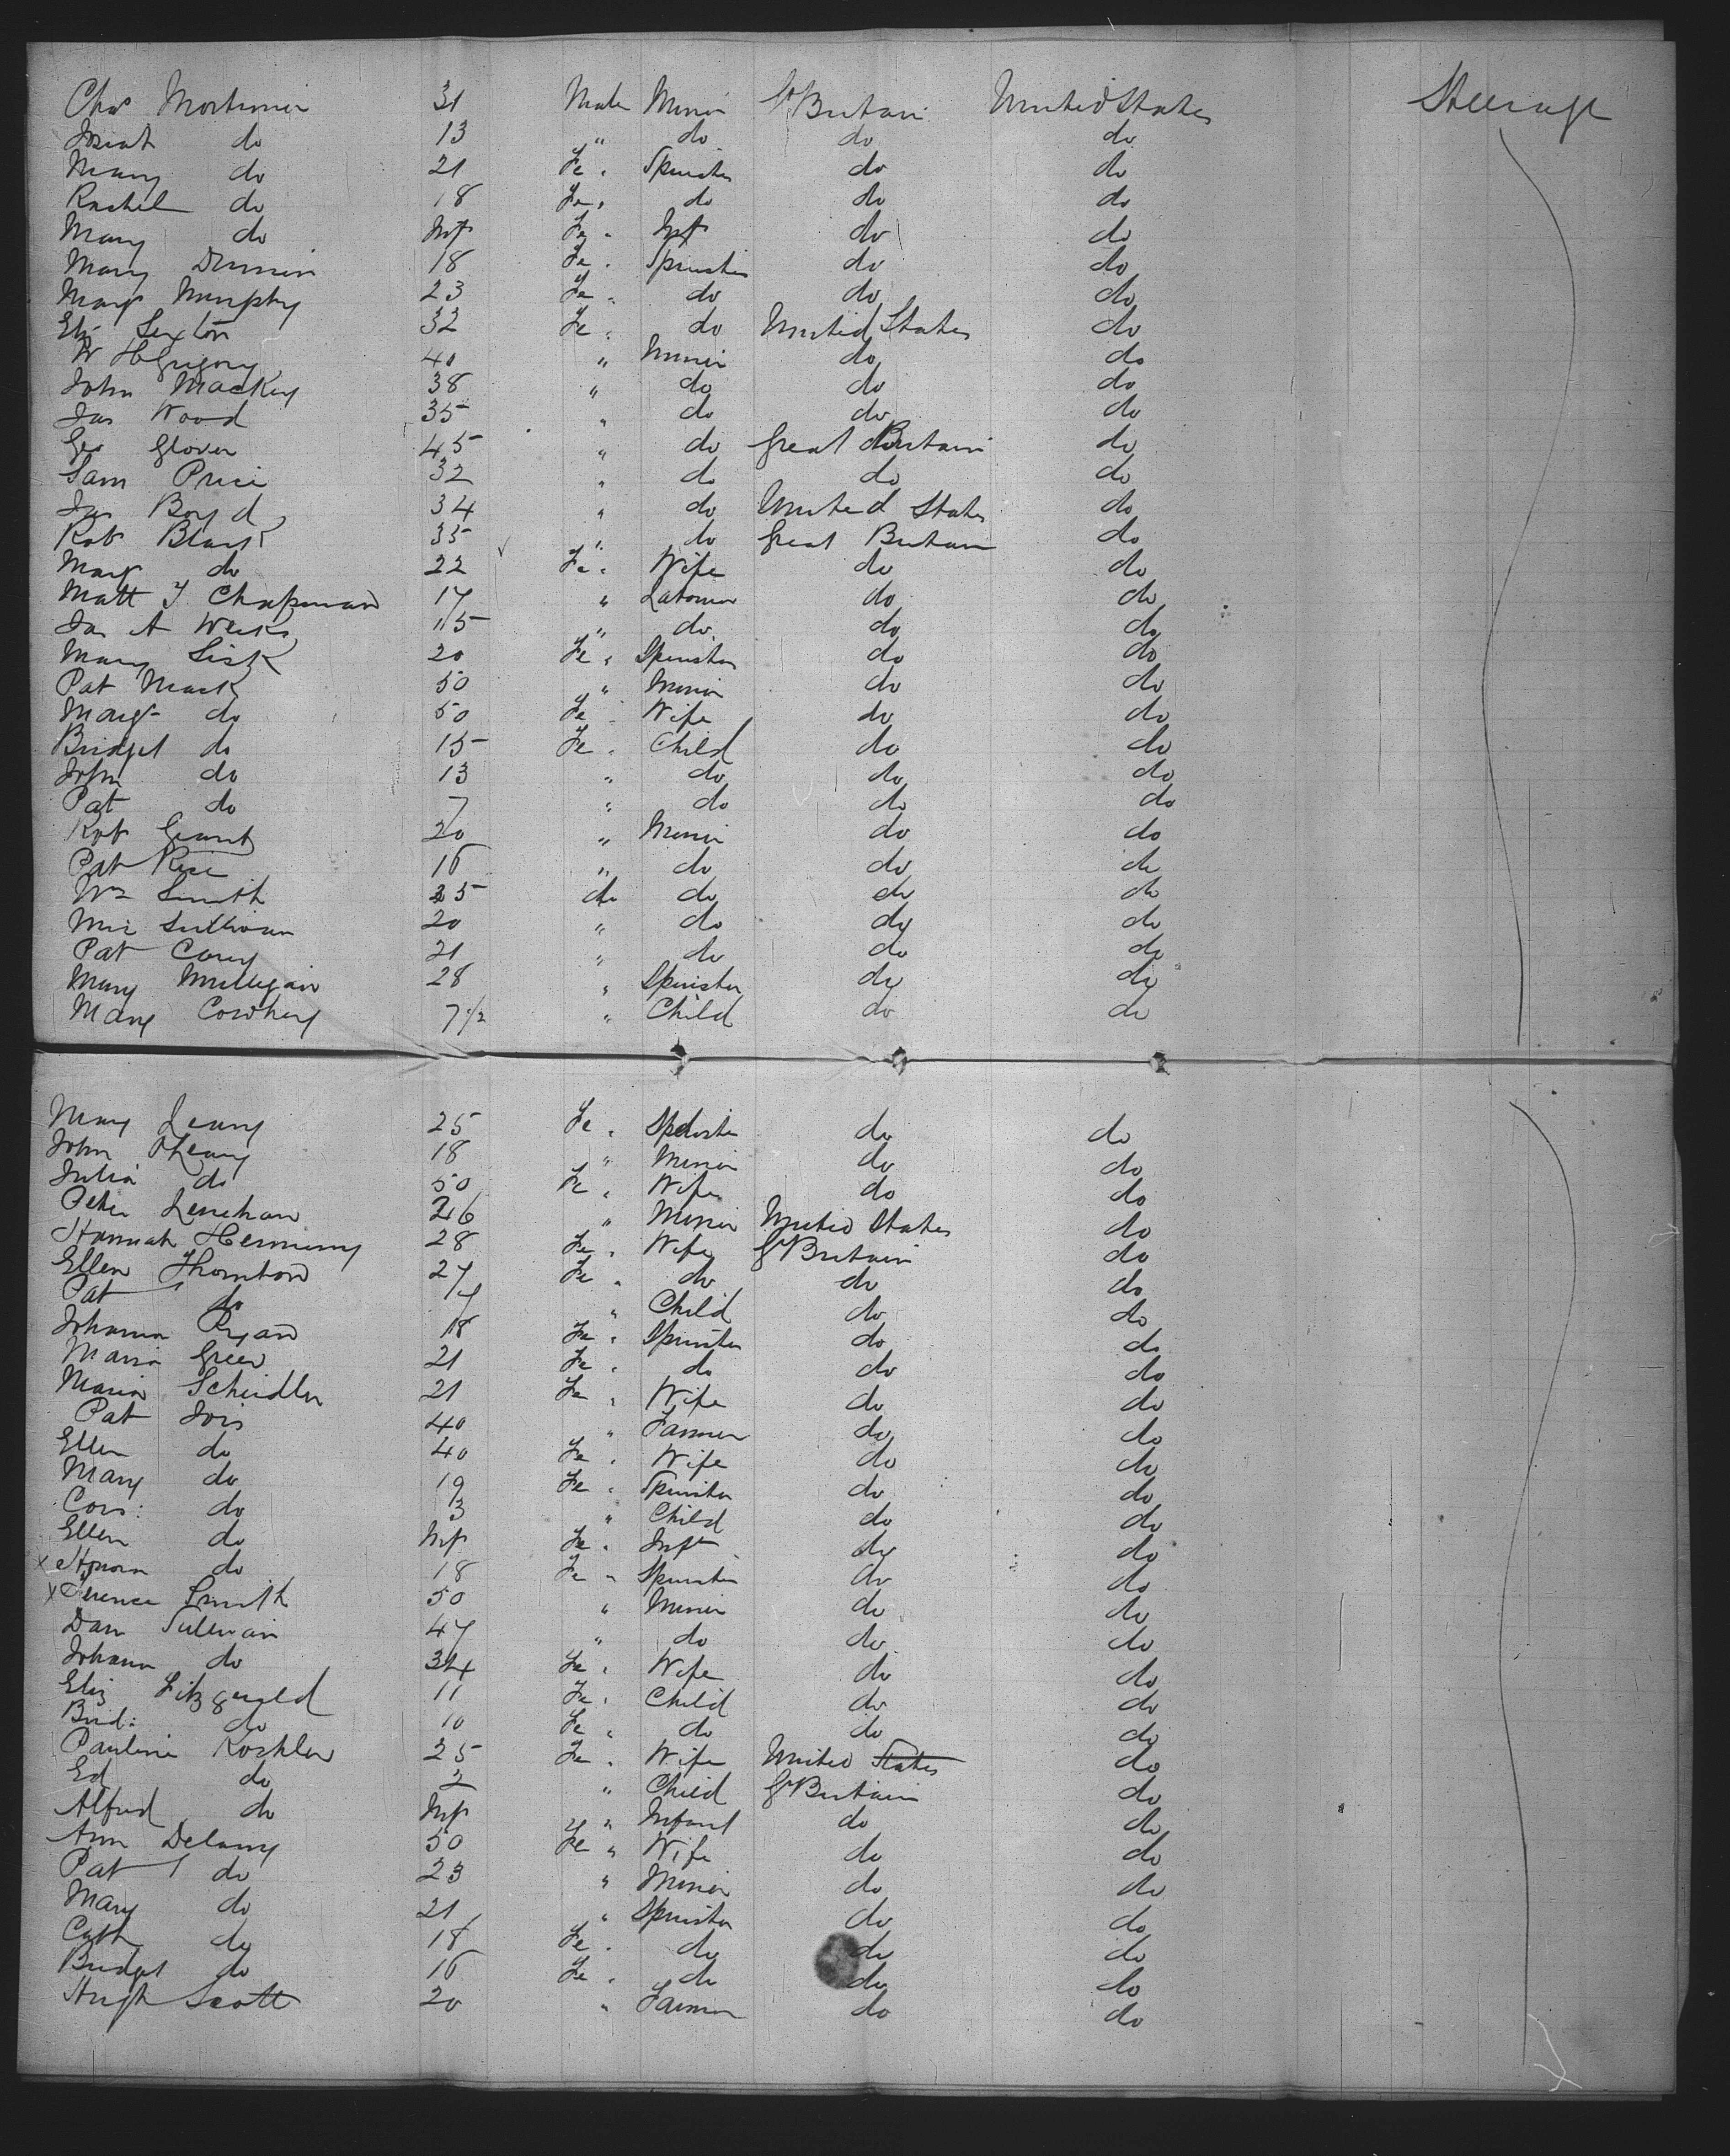 Chas Mortimer 31 Male Miner Gt Britain United States Steerage
Josiah do 13 " do do do
Mary do 21 Fe " Spinster do do
Rachel do 18 Fe " do do do
Mary do Inft Fe " Inft do do
Mary 18 Fe " Spinster do do
Margt Murphy 23 Fe " do do do
Eliz Sexton 32 Fe " do United States do
W H Gregory 40 " Miner do do
John Mackey 38 " do do do
Jas Wood 35 " do do do
Geo Glover 45 " do Great Britain do
Sam Price 32 " do do do
Jas Boyd 34 " do United States do
Robt Black 35 " do Great Britain do
Margt do 22 Fe " Wife do do
Matt J Chapman 17 " Laborer do do
Jas A Weeks 15 " do do do
Mary Sisk 20 Fe " Spinster do do
Pat Mack 50 " Miner do do
Margt do 50 Fe " Wife do do
Bridget do 15 Fe " Child do do
John do 13 " do do do
Pat do 7 " do do do
Robt Grant 20 " Miner do do
Pat Rice 16 " do do do
Wm Smith 25 do do do do
Mic Sullivan 20 " do do do
Pat Carey 21 " do do do
Mary Mulligan 28 " Spinster do do
Mary Cowhey 7 1/2 " Child do do
Mary Leary 25 Fe " Spinster do do
John OLeary 18 " Miner do do
Julia do 50 Fe " Wife do do
Peter Lenehan 26 " Miner United States do
Hannah 28 Fe " Wife Gt Britain do
Ellen Thornton 27 Fe " do do do
Pat do 7 " Child do do
Johanna Ryan 18 Fe " Spinster do do
Maria Green 21 Fe " do do do
Maria Scheidler 21 Fe " Wife do do
Pat 40 " Farmer do do
Ellen do 40 Fe " Wife do do
Mary do 19 Fe " Spinster do do
Cors: do 3 " Child do do
Ellen do Inft Fe " Inft do do
x Honora do 18 Fe " Spinster do do
x Terence Smith 50 " Miner do do
Dan Sullivan 47 " do do do
Johana do 34 Fe " Wife do do
Eliz Fitzgerald 11 Fe " Child do do
Brid: do 10 Fe " do do do
Pauline Koehler 25 Fe " Wife United States do
Ed do 2 " Child Gt Britain do
Alfred do Inft " Infant do do
Ann Delany 50 Fe " Wife do do
Pat do 23 " Miner do do
Mary do 21 " Spinster do do
Cath do 18 Fe " do do do
Bridget do 16 Fe " do do do
Hugh Scott 20 " Farmer do do